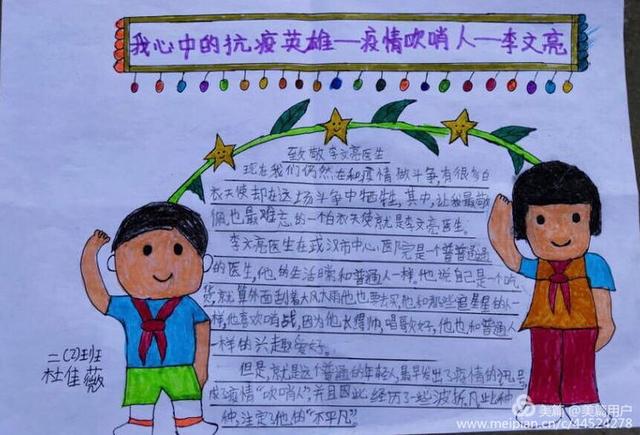 我心中的抗疫英雄—疫情吹哨人—李文亮
致敬李文亮医生
现在我们仍然在和疫情做斗争,有很多白
衣天使却在这场斗争中牺牲,其中,让我最敬
佩,也最难忘的一白衣天使就是李文亮医生。
李文亮医生在武汉市中心医院是个普普通通
的医生,他的生活跟和普通人一样。他说自己是一个吃
货,就算外面刮着大风大雨他也要去买,他和那些追星星的人一
样,他喜欢肖战,因为他长得帅,唱歌好,他也和普通人
一样的兴趣爱好。
但是,就是这个普通的年轻人最早发出了疫情的讯号,
成了疫情“吹哨人”,并且因此经历了一些波折,凡此种
种,注定了他的“不平凡”。
二(2)班
杜佳薇
美篇 @美篇用户
www.meipian.cn/c/44524278